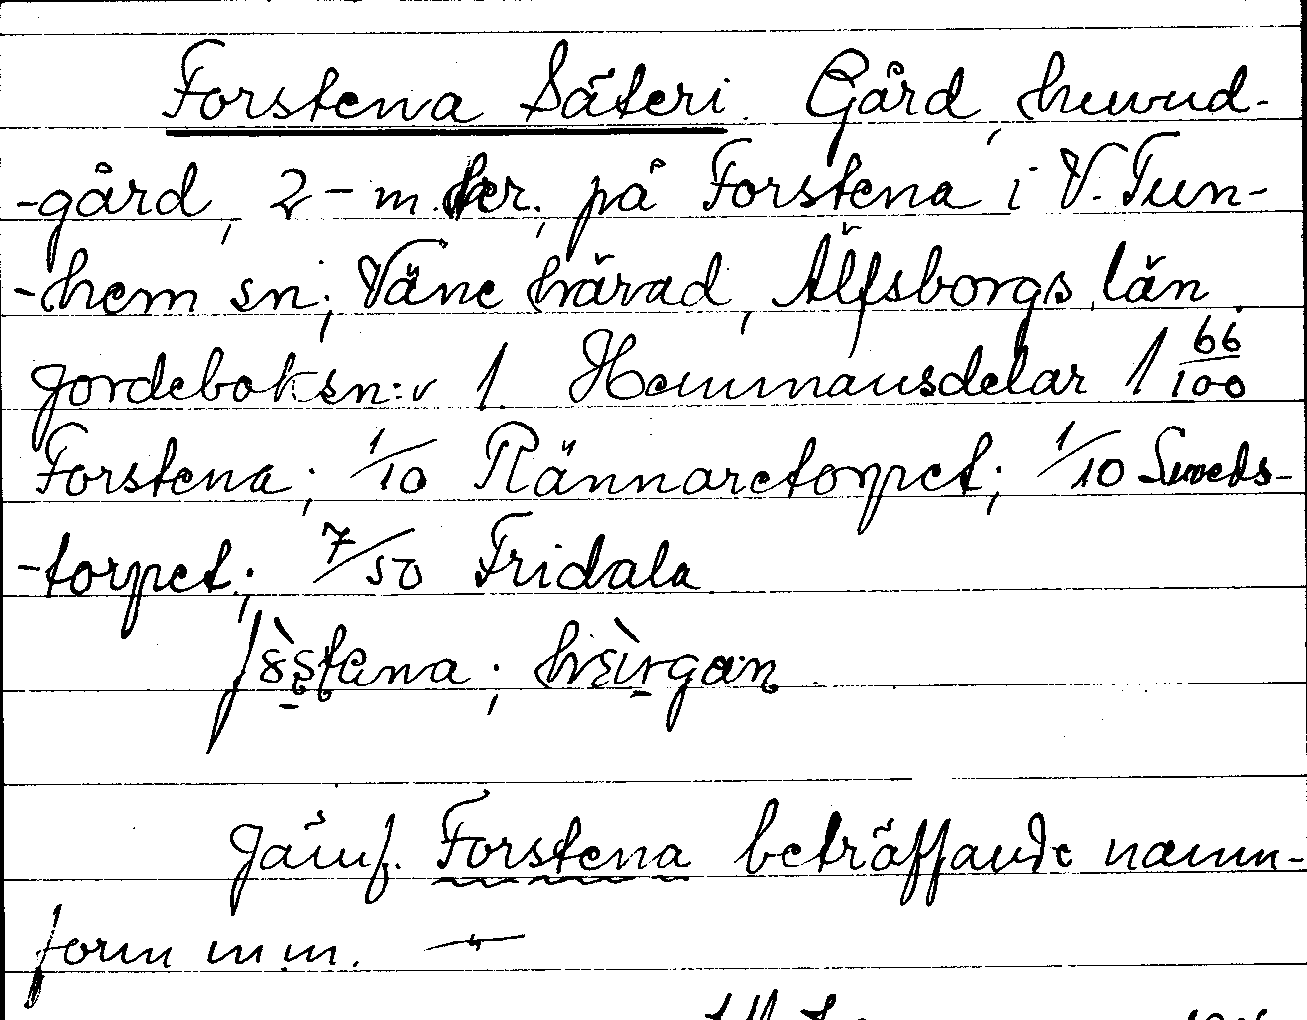 Forstena Säteri. Gård, huvud-
-gård, 2-m.ter, på Forstena i V. Tun-
-hem sn; Väne härad, Älfsborgs län.
Jordeboksn:r 1. Hemmansdelar 1 66/100
Forstena; 1/10 Rännaretorpet; 1/10 Sweds-
-torpet; 7/50 Fridala
Jämf. Forstena beträffande namn-
form m.m. —